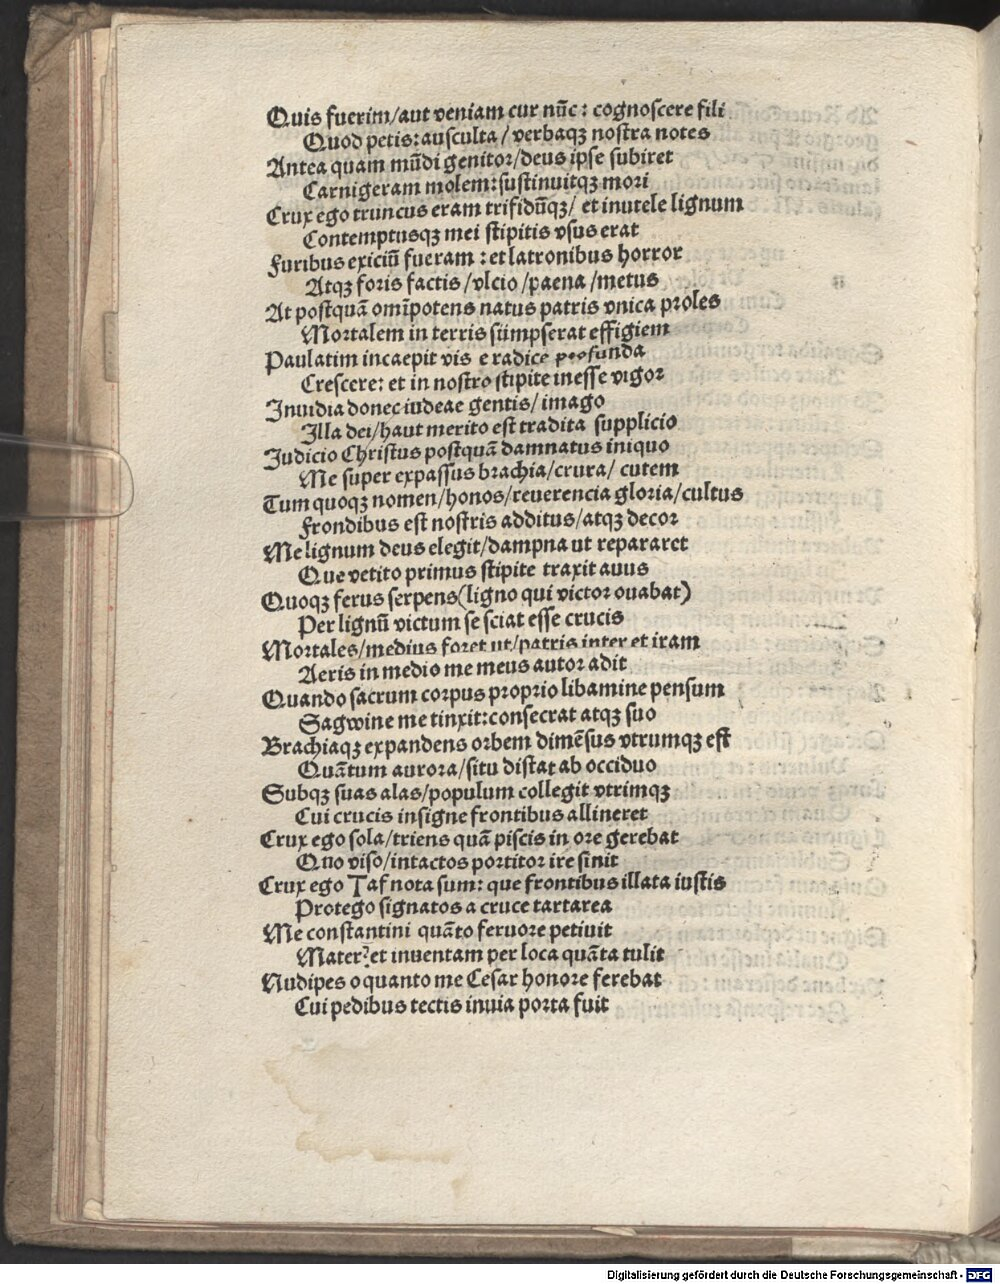 Quis fuerim/aut veniam cur nūc: cognoscere fili
Quod petis: ausculta/verbaqꝫ nostra notes
Antea quam mūdi genitor/deus ipse subiret
Carnigeram molem: sustinuitqꝫ mori
Crux ego truncus eram trifidūqꝫ/ et inutele lignum
Contemptusqꝫ mei stipitis vsus erat
Furibus exiciū fueram: et latronibus horror
Atqꝫ foris factis/vlcio/paena/metus
At postquā omīpotens natus patris vnica proles
Mortalem in terris sumpserat effigiem
Paulatim incaepit vis e radice profunda
Crescere: et in nostro stipite inesse vigor
Inuidia donec iudeae gentis/ imago
Illa dei/haut merito est tradita supplicio
Iudicio Christus postquā damnatus iniquo
Me super expassus brachia/crura/ cutem
Tum quoqꝫ nomen/honos/reuerencia gloria/cultus
Frondibus est nostris additus/atqꝫ decor
Me lignum deus elegit/dampna ut repararet
Que vetito primus stipite traxit auus
Quoqꝫ ferus serpens(ligno qui victor ouabat)
Per lignū victum se sciat esse crucis
Mortales/medius foret ut/patris inter et iram
Aeris in medio me meus autor adit
Quando sacrum corpus proprio libamine pensum
Sagwine me tinxit: consecrat atqꝫ suo
Brachiaqꝫ expandens orbem dimēsus vtrumqꝫ est
Quātum aurora/situ distat ab occiduo
Subqꝫ suas alas/populum collegit vtrimqꝫ
Cui crucis insigne frontibus allineret
Crux ego sola/triens quā piscis in ore gerebat
Quo viso/intactos portitor ire sinit
Crux ego Taf nota sum: que frontibus illata iustis
Protego signatos a cruce tartarea
Me constantini quāto feruore petiuit
Mater? et inuentam per loca quāta tulit
Nudipes o quanto me Cesar honore ferebat
Cui pedibus tectis inuia porta fuit
Digitalisierung gefördert durch die Deutsche Forschungsgemeinschaft - DFG